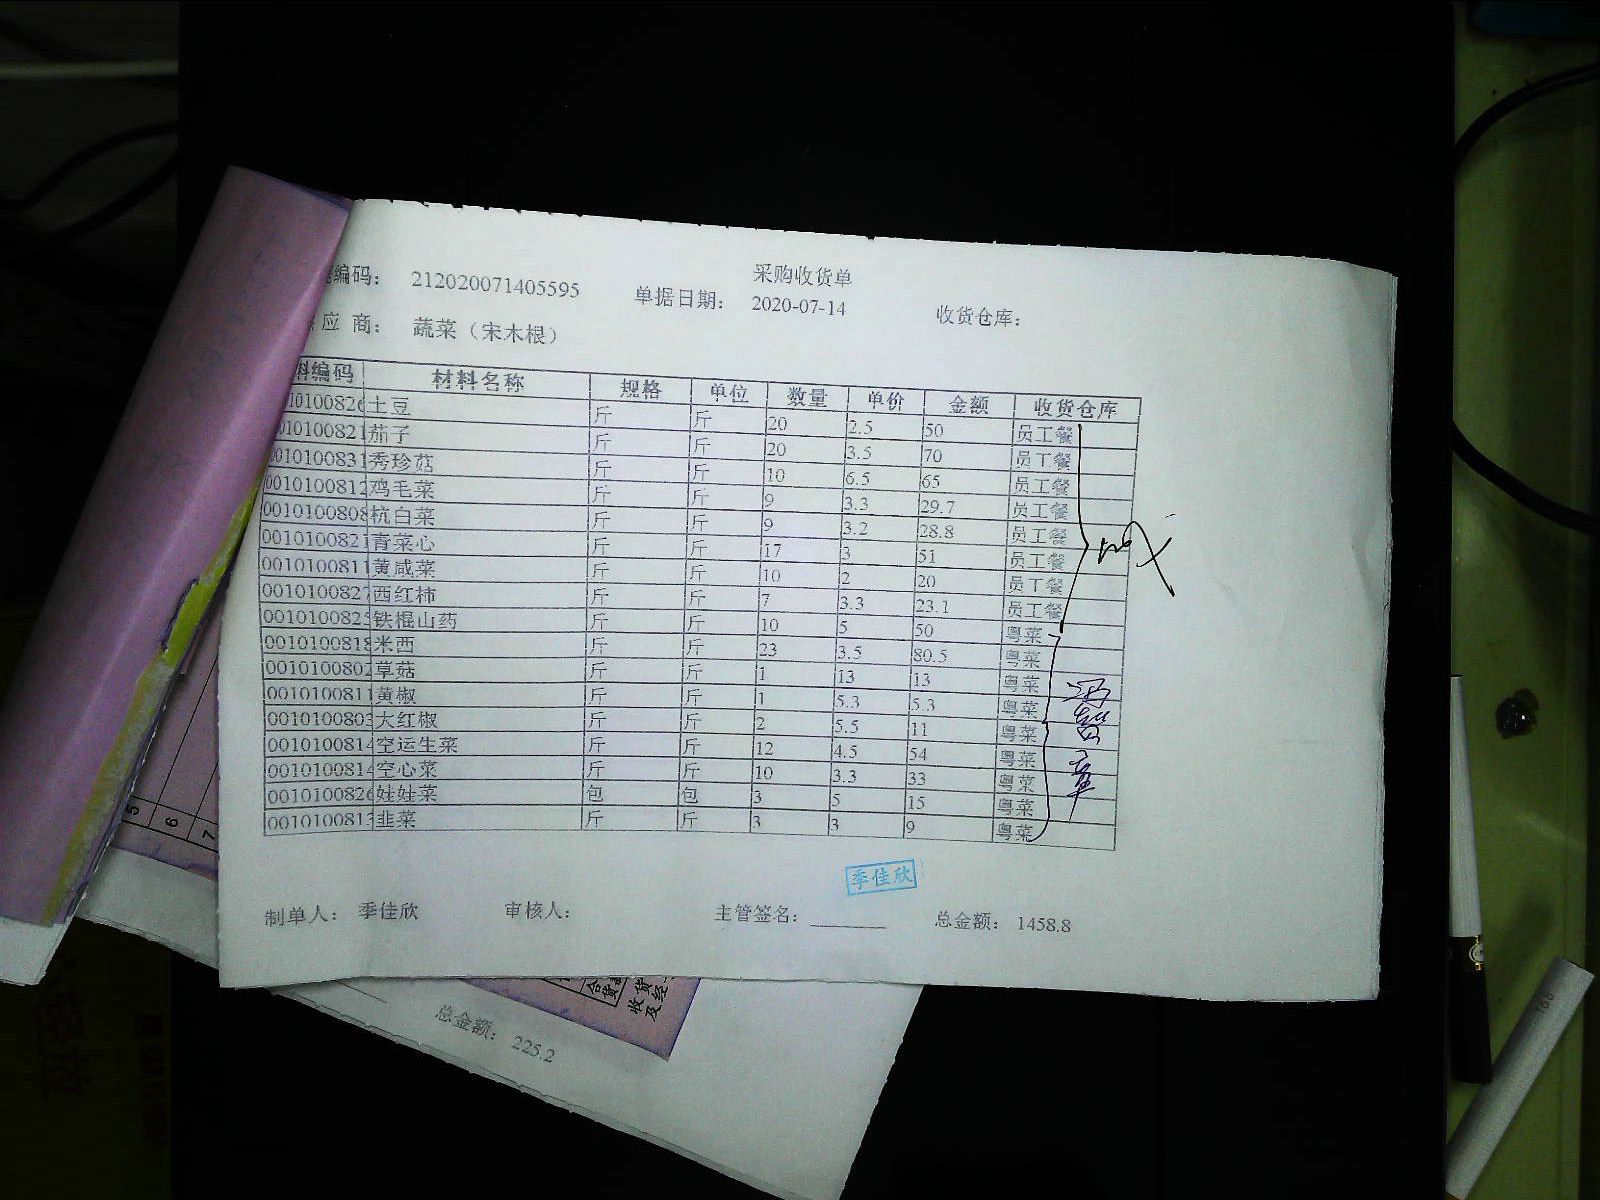 采购收货单
编码： 212020071405595 单据日期： 2020-07-14 收货仓库：
应 商： 蔬菜（宋木根）
料编码 材料名称 规格 单位 数量 单价 金额 收货仓库
010100826 土豆 斤 斤 20 2.5 50 员工餐
010100821 茄子 斤 斤 20 3.5 70 员工餐
0010100831 秀珍菇 斤 斤 10 6.5 65 员工餐
0010100812 鸡毛菜 斤 斤 9 3.3 29.7 员工餐
0010100808 杭白菜 斤 斤 9 3.2 28.8 员工餐
0010100821 青菜心 斤 斤 17 3 51 员工餐
0010100811 黄咸菜 斤 斤 10 2 20 员工餐
0010100827 西红柿 斤 斤 7 3.3 23.1 员工餐
0010100825 铁棍山药 斤 斤 10 5 50 粤菜
0010100818 米西 斤 斤 23 3.5 80.5 粤菜
0010100802 草菇 斤 斤 1 13 13 粤菜
0010100811 黄椒 斤 斤 1 5.3 5.3 粤菜
0010100803 大红椒 斤 斤 2 5.5 11 粤菜
0010100814 空运生菜 斤 斤 12 4.5 54 粤菜
0010100814 空心菜 斤 斤 10 3.3 33 粤菜
0010100826 娃娃菜 包 包 3 5 15 粤菜
0010100813 韭菜 斤 斤 3 3 9 粤菜
季佳欣
制单人： 季佳欣 审核人： 主管签名： 总金额： 1458.8
5
6
7
收货
及经
总金额： 225.2